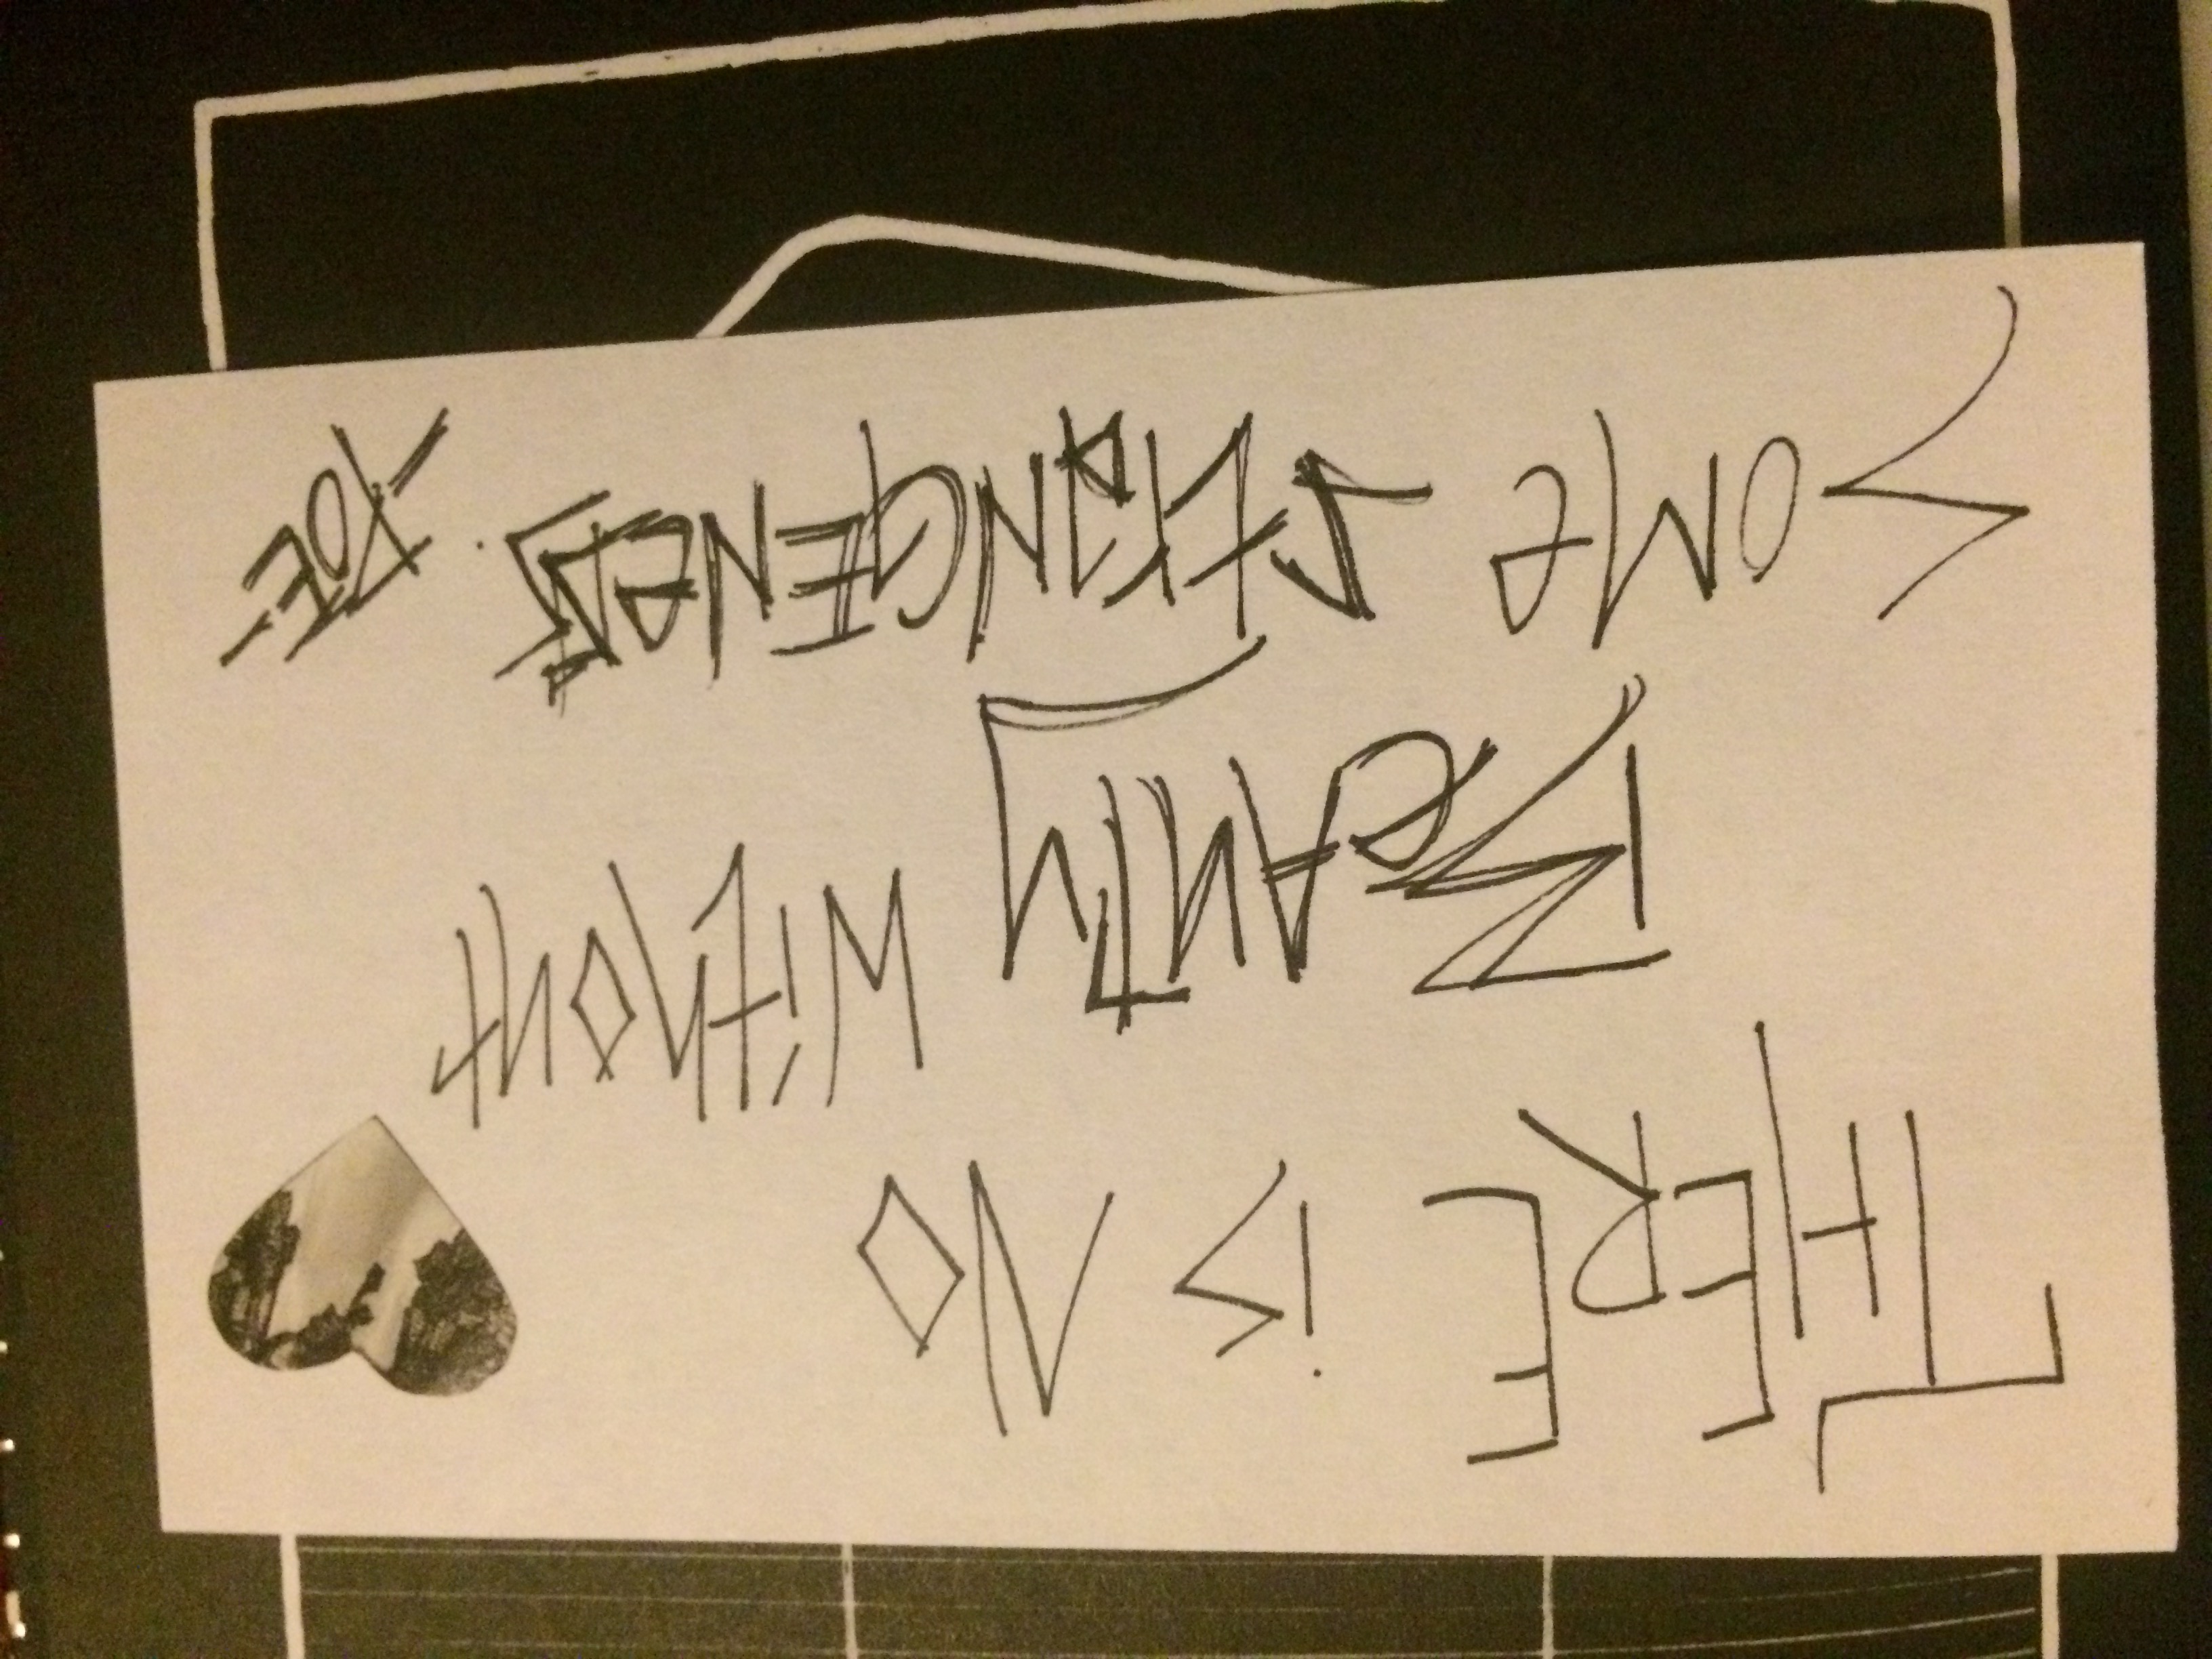 THERE iS NO
BeAuTy WiThOuT
SOMe STRANGENeSS. -POE-